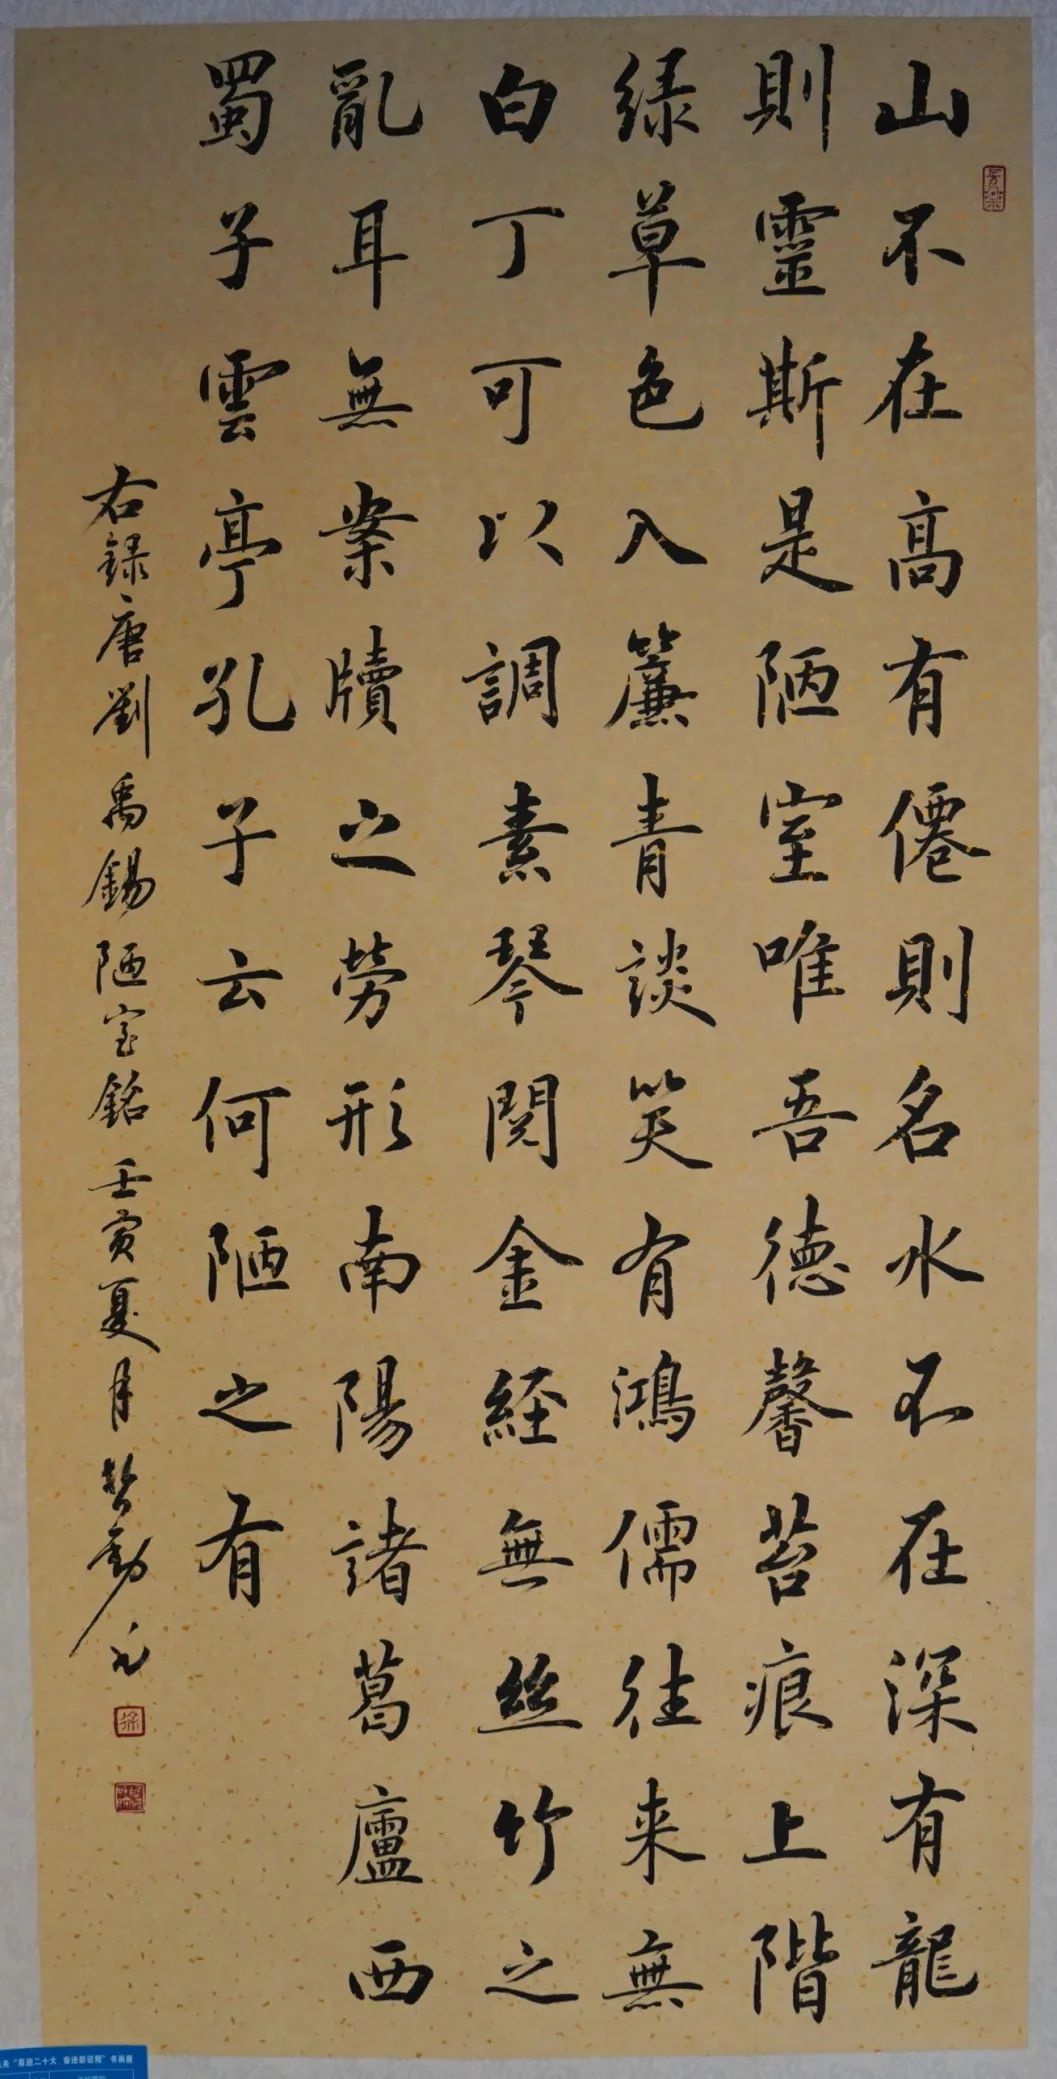 山不在高有僊則名水不在深有龍
則靈斯是陋室唯吾德馨苔痕上階
緑草色入簾青談笑有鴻儒往来無
白丁可以調素琴閱金経無絲竹之
亂耳無案牘之勞形南陽諸葛廬西
蜀子雲亭孔子云何陋之有
右録唐劉禹錫陋室銘壬寅夏月
“喜迎二十大 奋进新征程”书画展